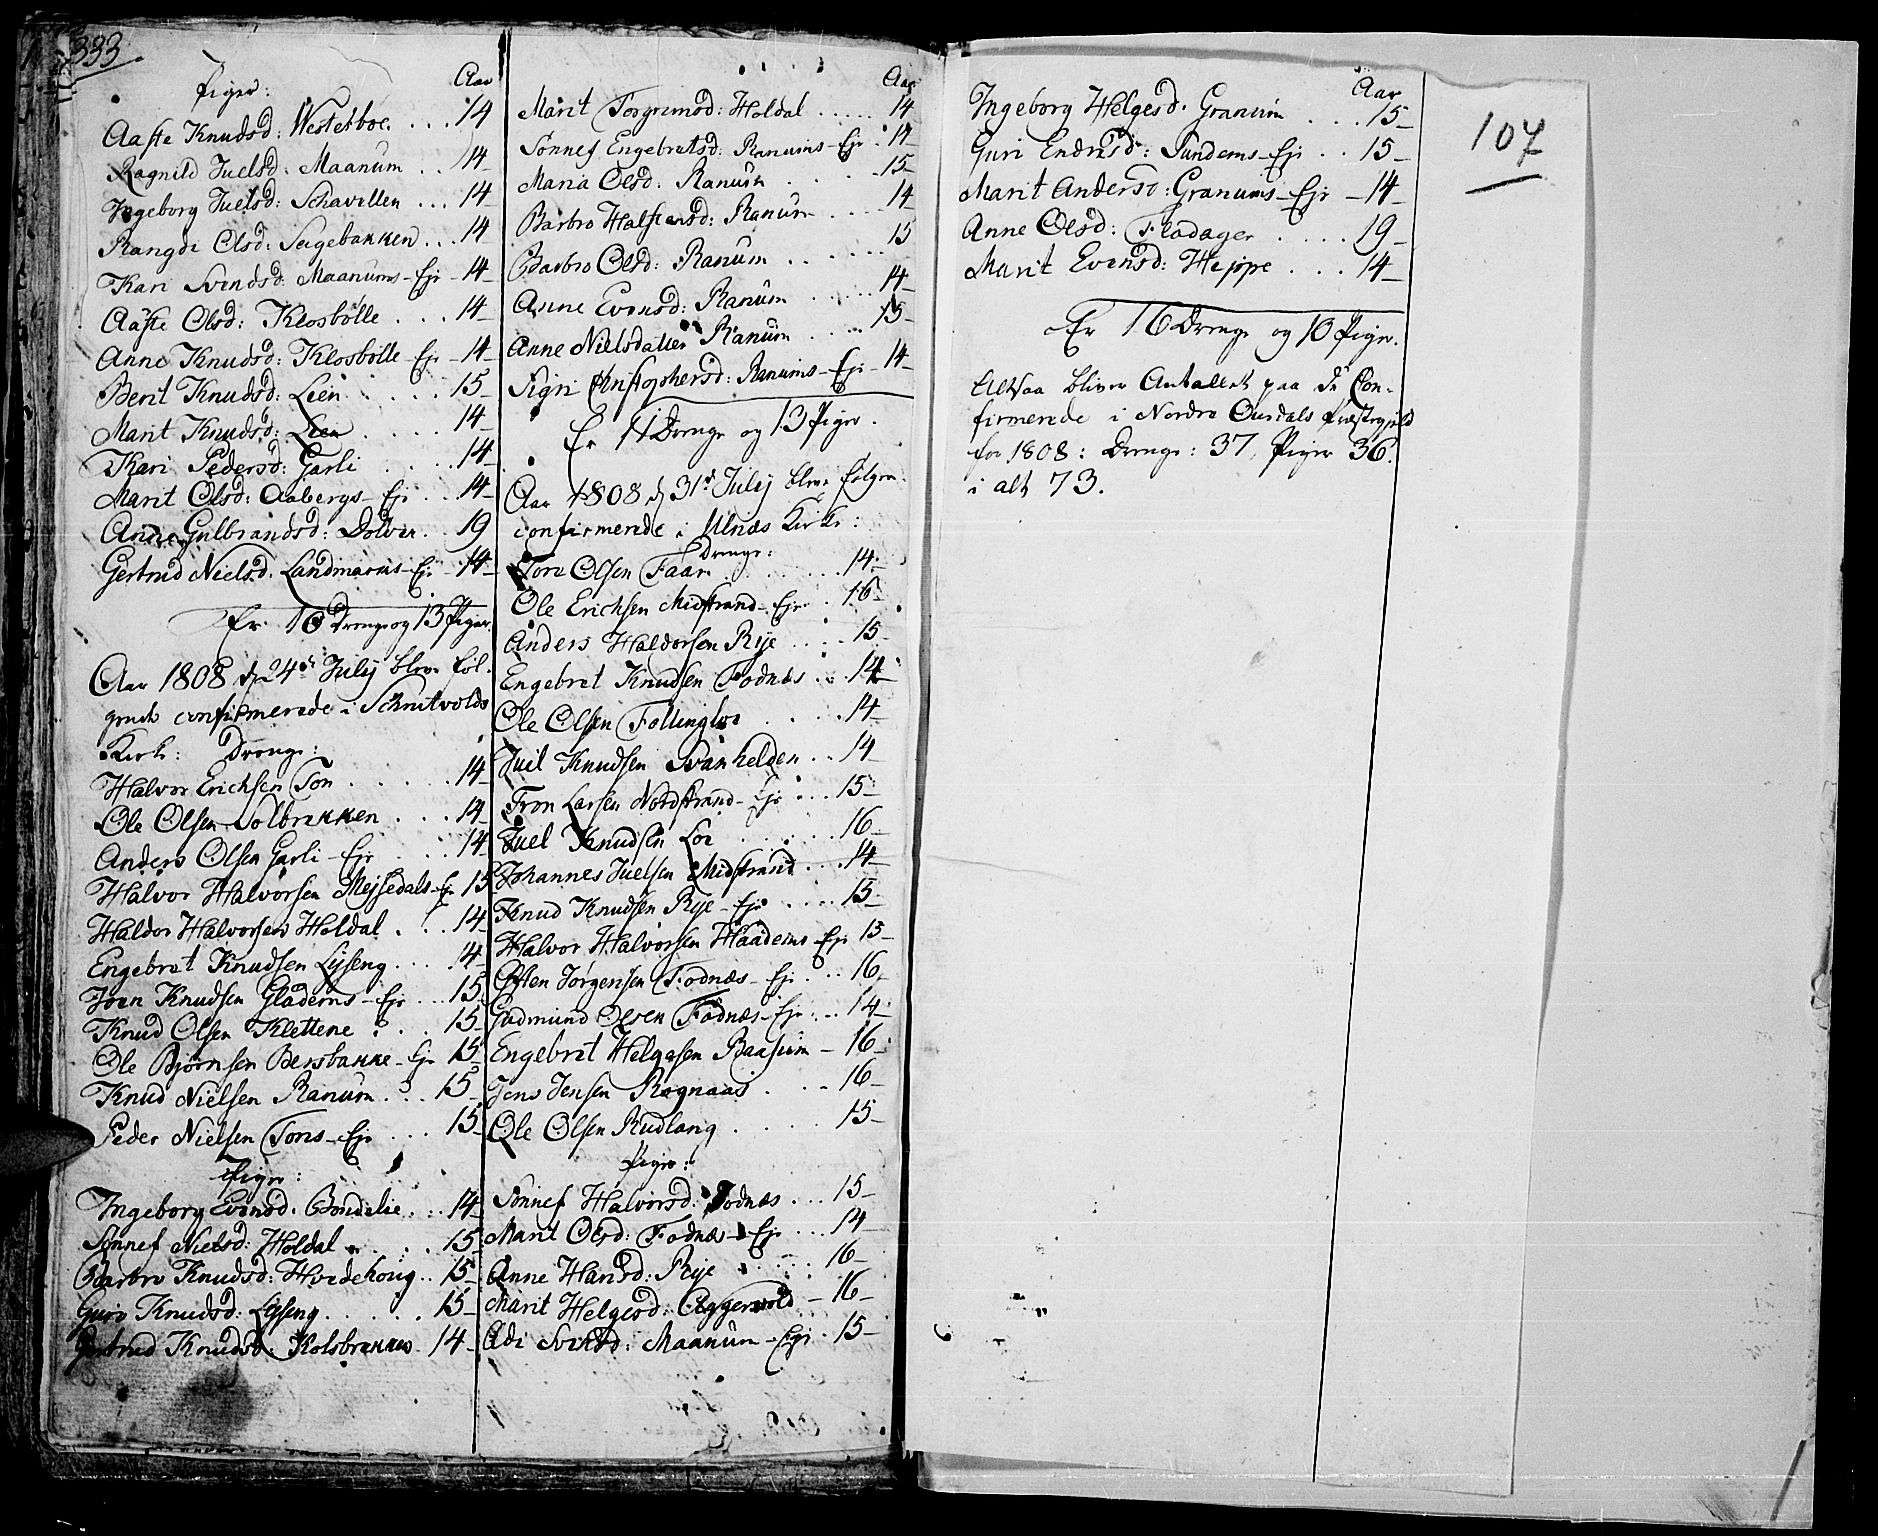 333.
Piger:
Aar
Aaste Knudsd: Westerboe. . . . 14
Ragnild Juelsd: Maanum . . 14
Ingeborg Juelsd: Schavellen . . . 14
Rangdi Olsd: Sagebakken . . . 14
Kari Svendsd: Maanums-Eje - 14
Aaste Olsd: Klosbølle . . . 14
Anne Knudsd: Klosbølle-Eje - 14
Berit Knudsd: Lien . . . . . 15
Marit Knudsd: Lien . . . . . 14
Kari Pedersd: Garli . . . . 14
Marit Olsd: Aabergs-Eje . . 14
Anne Gulbrandsd: Dolven . . 19
Gertrud Nielsd: Landmarks-Eje - 14
Er 10 Drenge og 13 Piger.
Aar 1808 d 24de July blev föl-
gende confirmerede i Schrutvolds
Kirke: Drenge:
Halvor Erichsen Ton . . . . . 14
Ole Olsen Dolbrekken . . . . 14
Anders Olsen Garli-Eje . . . . 14
Halvor Halvorsen Mejsedals-Eje 15
Haldor Halvorsen Holdal . . . 14
Engebret Knudsen Lyseng . . . 14
Joen Knudsen Gladems-Eje . . . 15
Knud Olsen Klettene . . . 15
Ole Bjørnsen Bersbakke-Eje 15
Knud Nielsen Ranum . . . 15
Peder Nielsen Tons-Eje . . . 15
Piger:
Ingeborg Evensd: Bondelie . . . 14
Sønnef Nielsd: Holdal . . . . 15
Barbro Knudsd: Hvidehoug . . 15
Guro Knudsd: Lyseng . . . . . 15
Gertrud Knudsd: Kolsbrekke . 14
Aar
Marit Torgrimsd: Holdal . . . . . 14
Sønnef Engebretsd: Ranums-Eje . 14
Maria Olsd: Ranum . . . . . 15
Barbro Halstensd: Ranum . . . . 14
Barbro Olsd: Ranum . . . . . . 15
Anne Evensd: Ranum . . . . . . 14
Anne Nielsdatter Ranum . . . 15
Sigri Christophersd: Ranums-Eje - 14
Er 11 Drenge og 13 Piger.
Aar 1808 d 31te July blev følgen
confirmerede i Ulnæs Kirke:
Drenge:
Tore Olsen Faar . . . . . . 14
Ole Erichsen Midstrand-Eje . 16
Anders Haldorsen Rye . . . . 15
Engebret Knudsen Fodnæs . . 14
Ole Olsen Fallingloe . . . . . 14
Juel Knudsen Svanhelden . . 14
Tron Larsen Nordstrand-Eje . . . 15
Juel Knudsen Loe . . . . . . 16
Johannes Juelsen Midstrand . . . 14
Knud Knudsen Rye-Eje . . . . 15
Halvor Halvorsen Haadems-Eje 15
Østen Jørgensen Fodnæs-Eje . . . 16
Gudmund Olsen Fodnæs-Eje . . . 14
Engebret Helgesen Baasum - 16
Jens Jensen Rognaas . . . - 16
Ole Olsen Rudlang . . . . . 15
Piger:
Sønnef Halvorsd: Fodnæs . . . 15
Marit Olsd: Fodnæs-Eje . . . 14
Anne Hansd: Rye . . . . . . 16
Marit Helgesd: Aggervold - 16
Adi Svensd: Maanum-Eje . 15
Aar
Ingeborg Helgesd: Granum . . . 15
Guri Endresd: Sundems-Eje . . 15
Marit Andersd: Granums-Eje - 14
Anne Olsd: Fladager . . . . . 19
Marit Evensd: Heppe . . . . 14
Er 16 Drenge og 10 Piger.
Altsaa bliver Antallet paa de Con-
firmerede i Nordre Ourdals Præstegjeld
for 1808: Drenge: 37, Piger 36.
i alt 73.
107